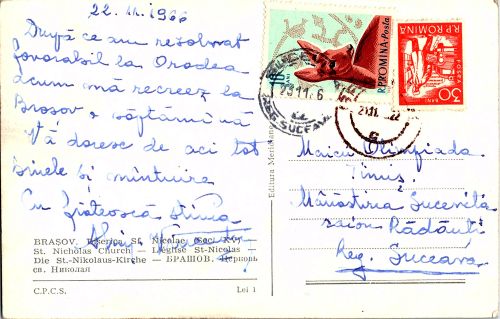 22.II.1966
După ce am rezolvat
favorabil la Oradea
acum mă recreez la
Brașov o săptămînă
Vă doresc de aci tot
binele și mîntuire
Cu frățească stima
BRAȘOV. Biserica Sf. Nicolae (sec. XV)
St. Nicholas Church — L'église St-Nicolas —
Die St.-Nikolaus-Kirche — БРАШОВ. Церковь
св. Николая
C.P.C.S.
Lei 1
Editura Meridiane
R.P.ROMINA-Posta
R.P.ROMINA
POSTA
30
BANI
REG. SUCEAVA
Maica Olimpiada
Mănăstirea Sucevița
raion Rădăuți
Reg. Suceava